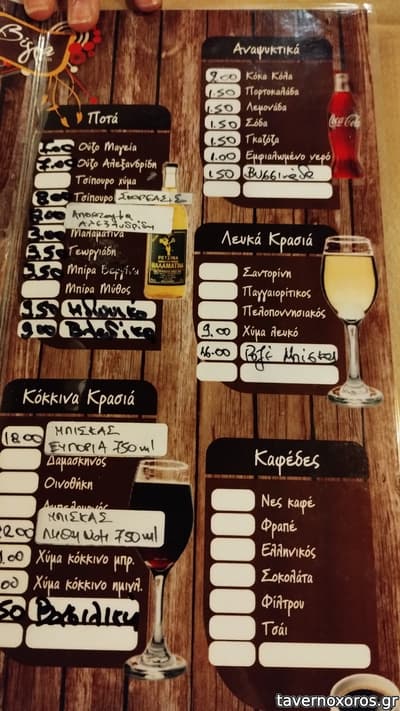 Αναψυκτικά
2.00 Κόκα Κόλα
1.50 Πορτοκαλάδα
1.50 Λεμονάδα
1.50 Σόδα
1.50 Γκαζόζα
1.00 Εμφιαλωμένο νερό
1.50 Βυσσινάδα
Coca-Cola
Ποτά
Ούζο Μαγεία
Ούζο Αλεξανδρίδη
Τσίπουρο χύμα
Τσίπουρο
Απόσταγμα
Αλεξανδρίδη
Μαλαματίνα
3.50 Γεωργιάδη
3.50 Μπίρα Βεργίνα
Μπίρα Μύθος
ΡΕΤΣΙΝΑ
ΜΑΛΑΜΑΤΙΝΑ
Λευκά Κρασιά
Σαντορίνη
Παγγαιορίτικος
Πελοποννησιακός
9.00 Χύμα λευκό
16.00 Ροζέ Μπίσκας
Κόκκινα Κρασιά
18.00 ΜΠΙΣΚΑΣ
ΕΜΠΟΡΙΑ 750ml
Δαμασκηνός
Οινοθήκη
ΜΠΙΣΚΑΣ
ΛΗΘΗ ΝΟΤΗ 750ml
Χύμα κόκκινο μπρ.
Χύμα κόκκινο ημιγλ.
Καφέδες
Νες καφέ
Φραπέ
Ελληνικός
Σοκολάτα
Φίλτρου
Τσάι
tavernoxoros.gr